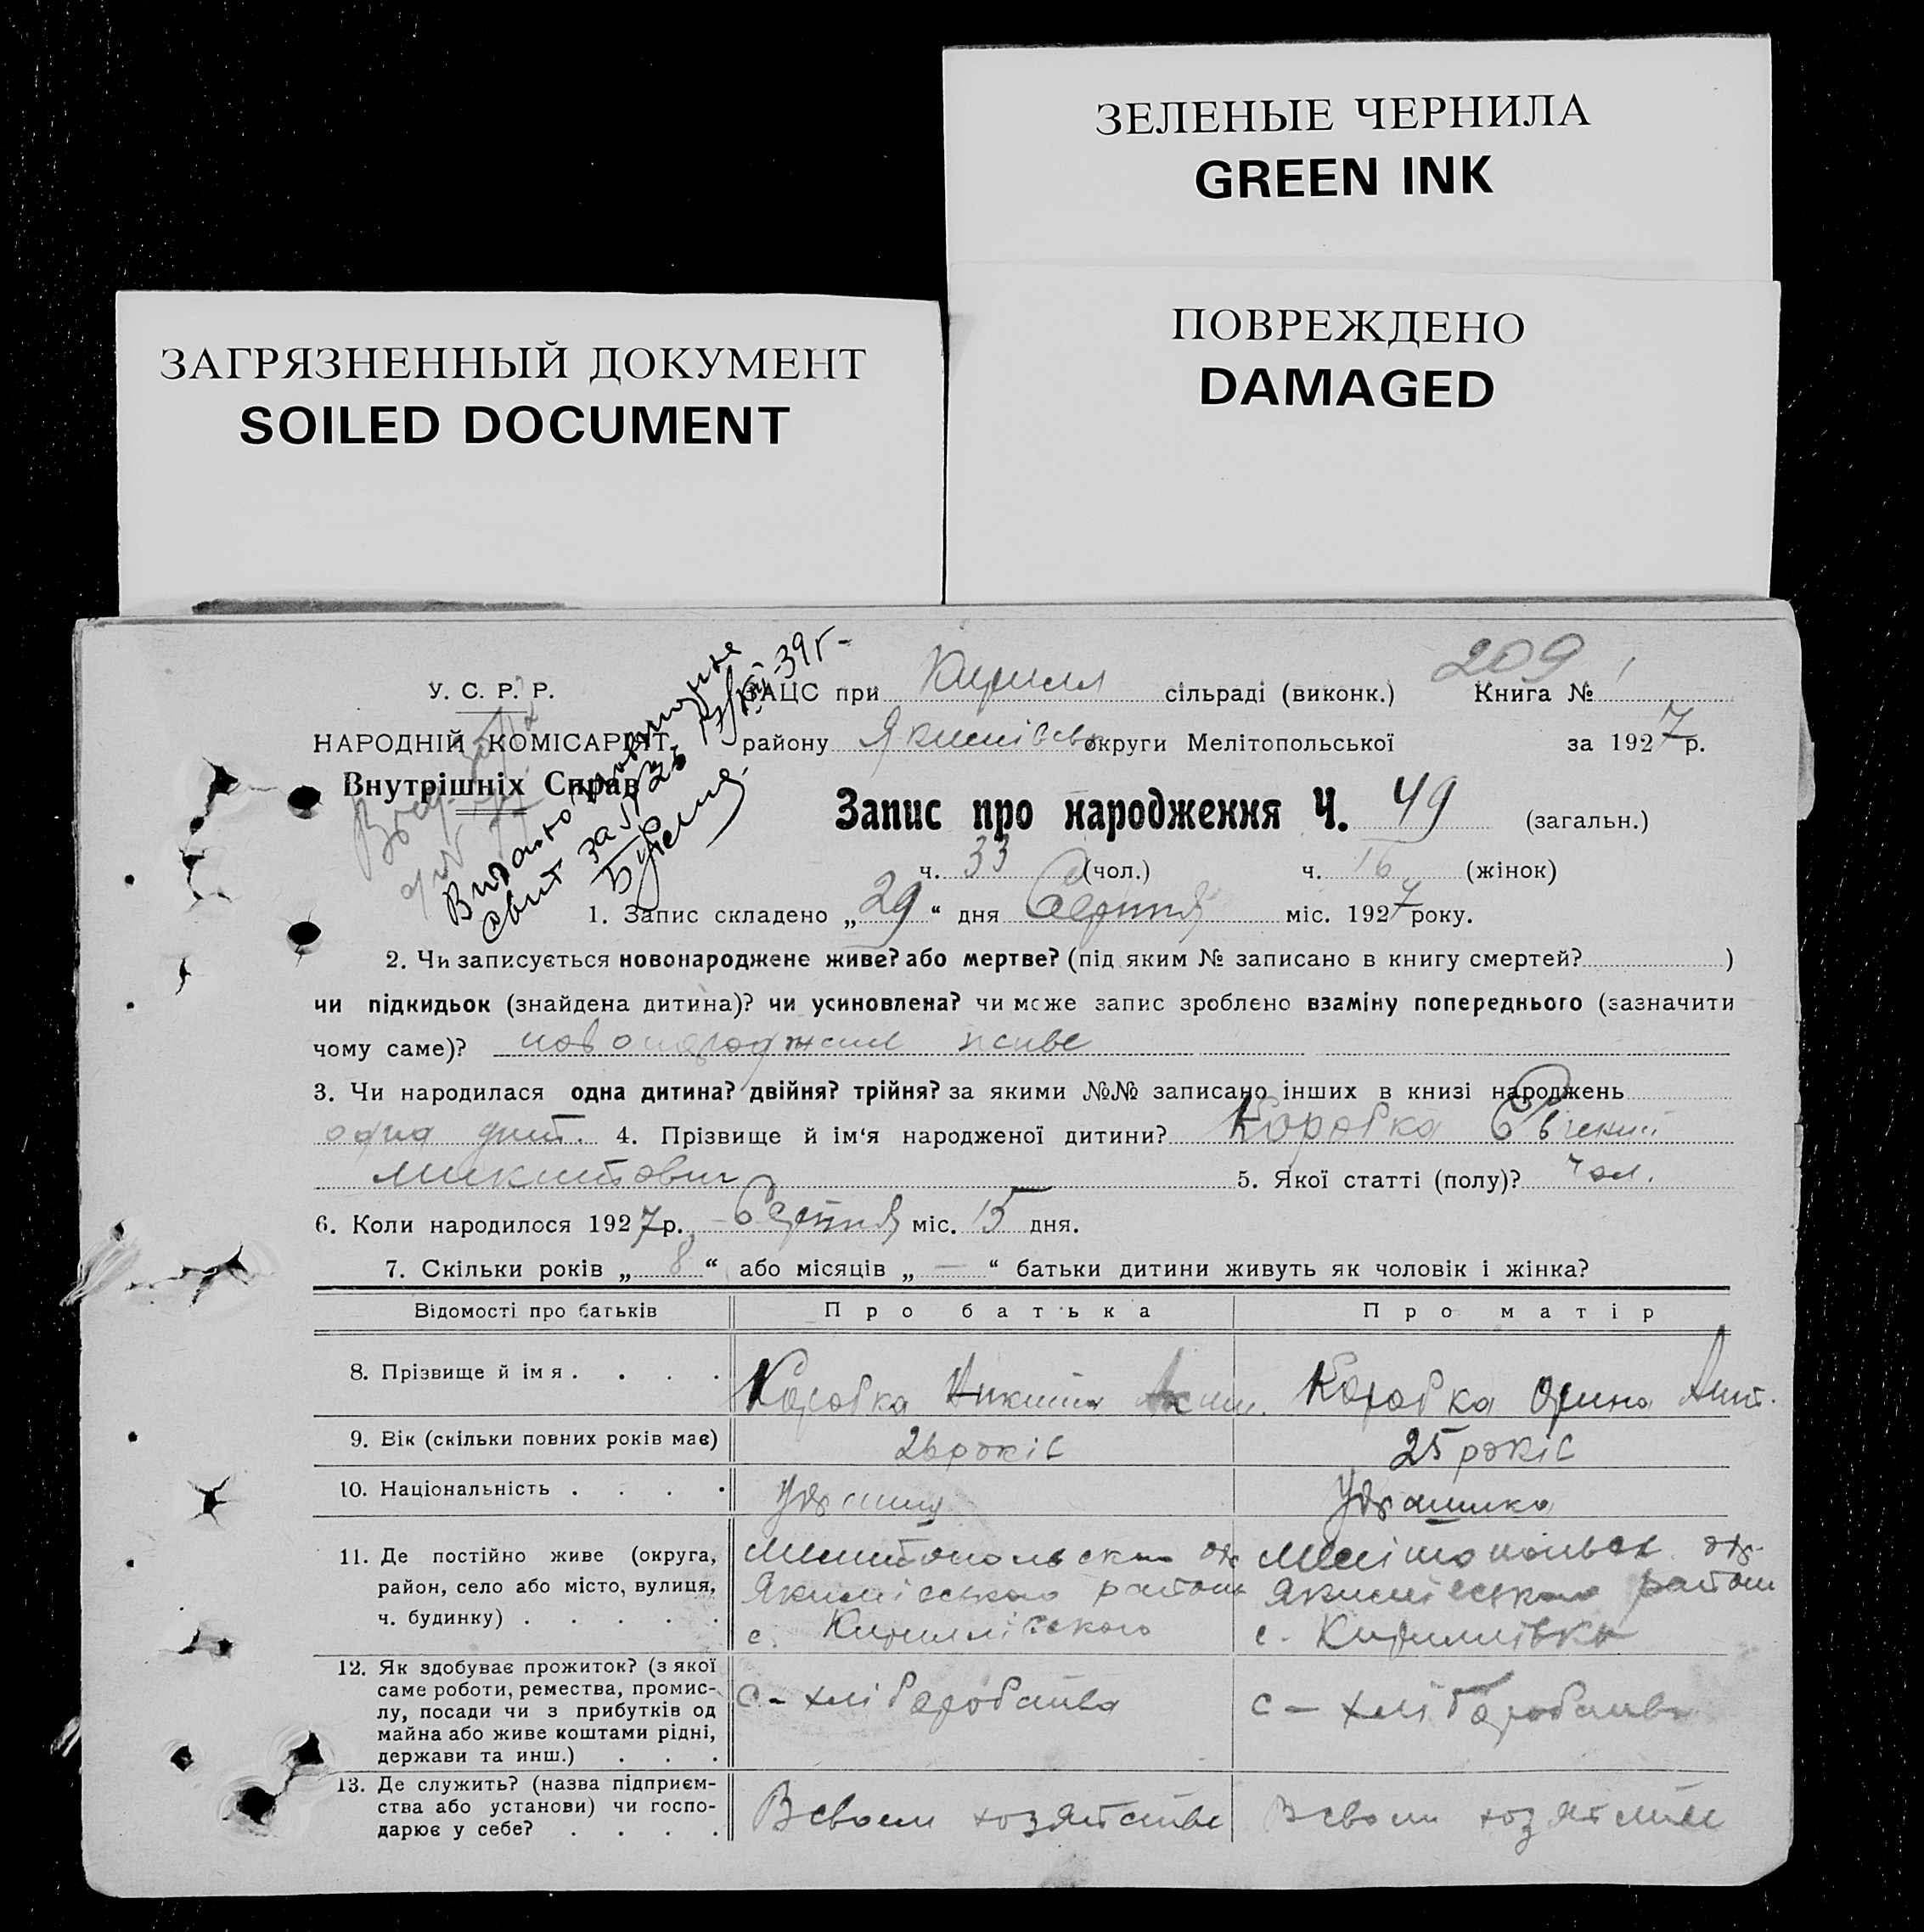 ЗЕЛЕНЫЕ ЧЕРНИЛА
GREEN INK
ПОВРЕЖДЕНО
DAMAGED
ЗАГРЯЗНЕННЫЙ ДОКУМЕНТ
SOILED DOCUMENT
209
У. С. Р. Р.
НАРОДНІЙ КОМІСАРІЯТ
Внутрішніх Справ
Видано повторне
свит за №
39 г
ЗАЦС при Кирилл сільраді (виконк.) Книга №
району Якимівськ округи Мелітопольської за 1927 р.
Запис про народження Ч. 49 (загальн.)
ч. 33 (чол.) ч. 16 (жінок)
1. Запис складено „29“ дня Серпня міс. 1927 року.
2. Чи записується новонароджене живе? або мертве? (під яким № записано в книгу смертей? )
чи підкидьок (знайдена дитина)? чи усиновлена? чи може запис зроблено взаміну попереднього (зазначити
чому саме)? новонароджене живе
3. Чи народилася одна дитина? двійня? трійня? за якими №№ записано інших в книзі народжень
одна дит. 4. Прізвище й ім'я народженої дитини? Коробка Євгений
Микитович 5. Якої статті (полу)? чол.
6. Коли народилося 1927 р. Серпня міс. 15 дня.
7. Скільки років „8“ або місяців „—“ батьки дитини живуть як чоловік і жінка?
Відомості про батьків Про батька Про матір
8. Прізвище й ім'я . . . . Коробка Никита Аким. Коробка Орина Ант.
9. Вік (скільки повних років має) 26 років 25 років
10. Національність . . . . Українка
11. Де постійно живе (округа, Мелитопольска ок Мелітопольск. ок.
район, село або місто, вулиця, Якимівського район Якимівського район
ч. будинку) . . . . . с. Кириллівского с. Кириллівка
12. Як здобуває прожиток? (з якої
саме роботи, ремества, промис- с-хліборобства с-хліборобства
лу, посади чи з прибутків од
майна або живе коштами рідні,
держави та инш.) . . .
13. Де служить? (назва підприєм-
ства або установи) чи госпо- В своем хозяйстве В своем хозяйстве
дарює у себе? . . . .